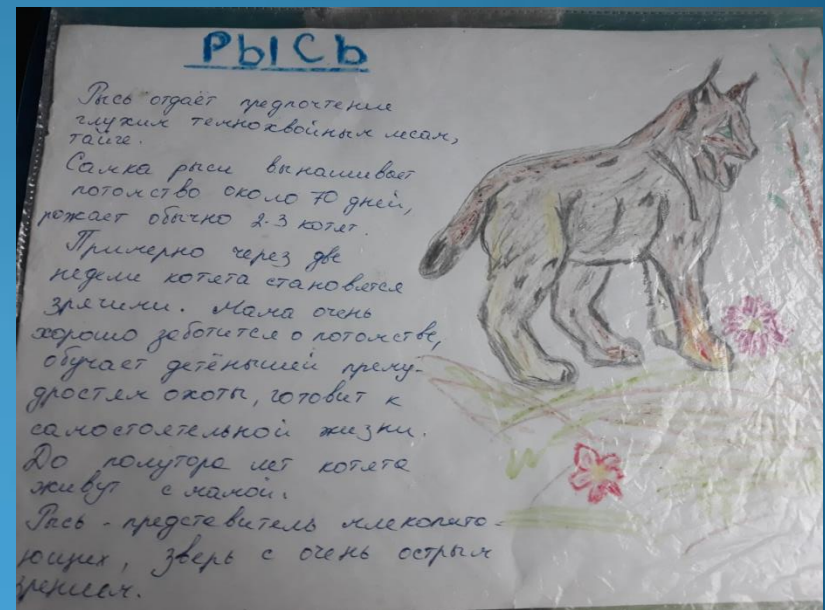 РЫСЬ
Рысь отдаёт предпочтение
глухим темнохвойным лесам,
тайге.
Самка рыси вынашивает
потомство около 70 дней,
рожает обычно 2-3 котят.
Примерно через две
недели котята становятся
зрячими. Мама очень
хорошо заботится о потомстве,
обучает детёнышей прему-
дростям охоты, готовит к
самостоятельной жизни.
До полутора лет котята
живут с мамой.
Рысь - представитель млекопита-
ющих, зверь с очень острым
зрением.